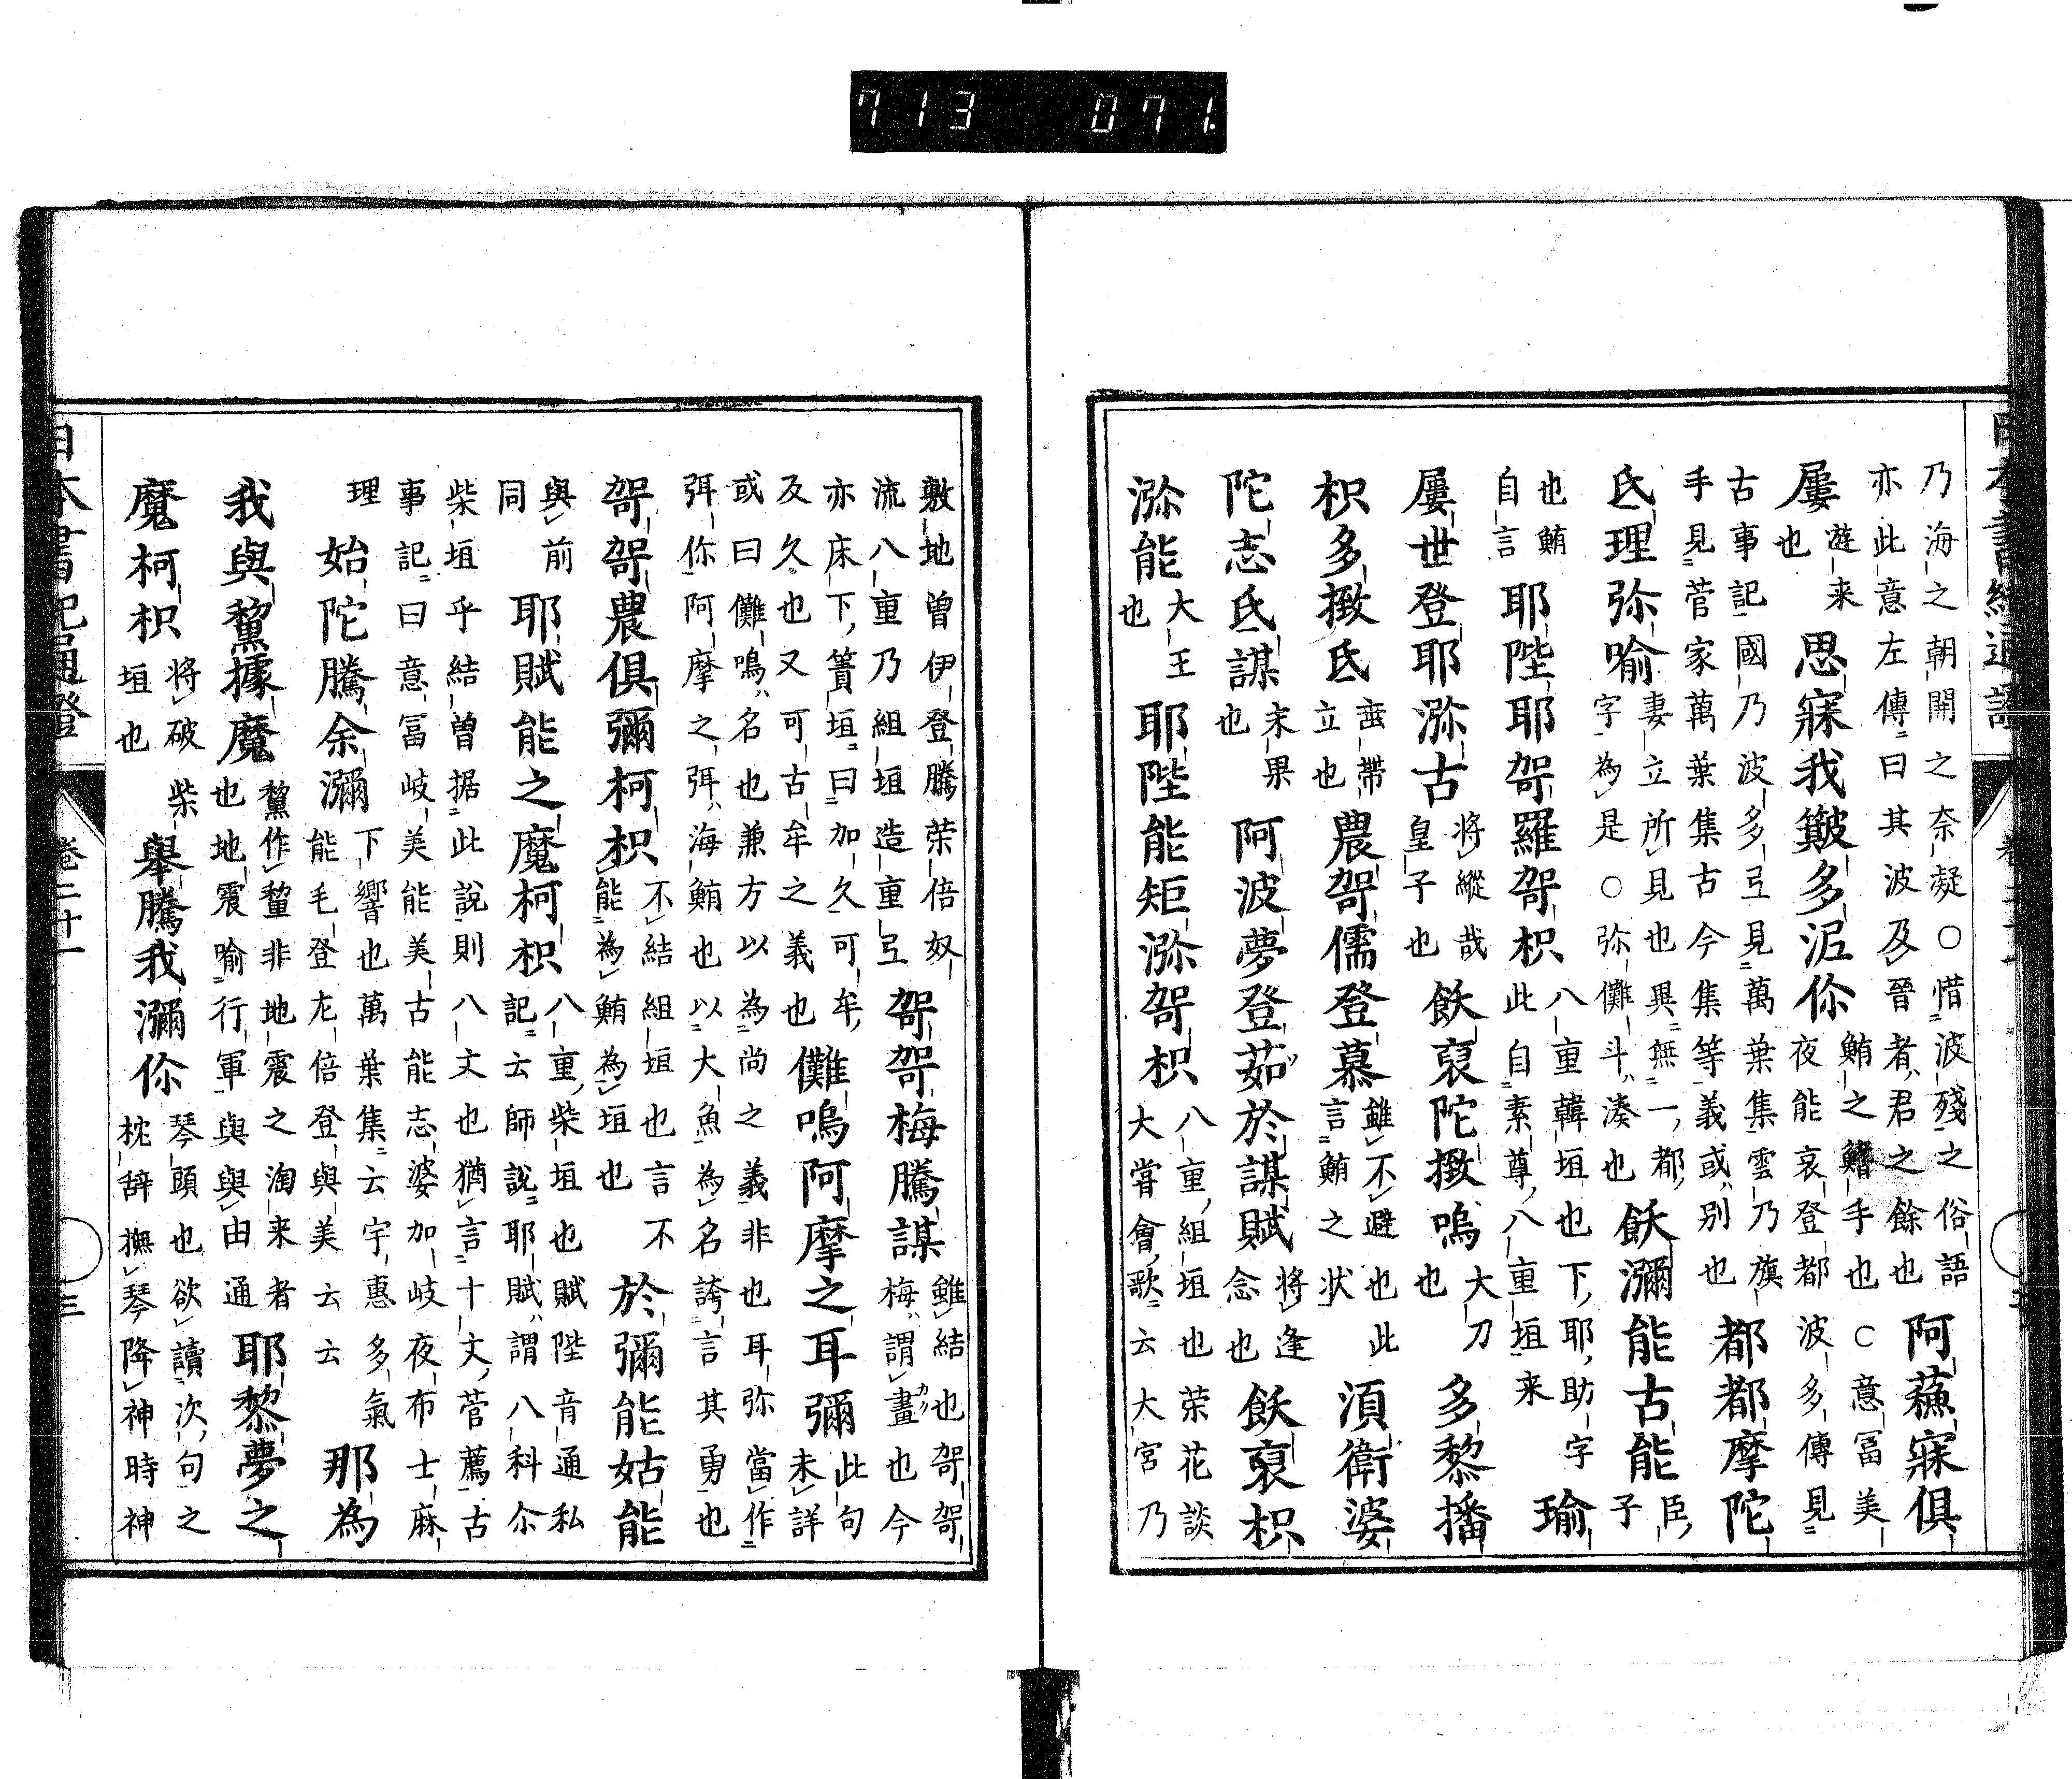 713 071
乃海之朝開之奈凝○惜波残之俗語
亦此意左傳曰其波及晉者君之餘也
阿蘓寐俱
屢
遊来
也
思寐我簸多泥你
鮪之鰭手也○意冨美
夜能哀登都波多傳見
古事記國乃波多弖見萬葉集雲乃旗
手見菅家萬葉集古今集等義或別也
都都摩陀
氐理弥喻
妻立所見也異無一都
字為是○弥儺斗湊也
飫瀰能古能
臣
子
也鮪
自言
耶陛耶哿羅哿枳
八重韓垣也下耶助字
此自素尊八重垣来
瑜
屢世登耶沵古
将縦哉
皇子也
飫裒陀撽鳴
大刀
也
多黎播
枳多撽氐
垂帯
立也
農哿儒登慕
雖不避也此
言鮪之状
湏衛婆
陀志氐謀
末果
也
阿波夢登茹於謀賦
将逢
念也
飫裒枳
沵能
大王
也
耶陛能矩沵哿枳
八重組垣也荣花談
大嘗會歌云大宮乃
日本書紀通證 卷二十一 三
敷地曽伊登騰荣倍奴
流八重乃組垣造重弖
哿哿梅騰謀
雖結也哿哿
梅謂畫也今
亦床下簀垣曰加久可牟
及久也又可古牟之義也
儺鳴阿摩之耳彌
此句
未詳
或曰儺鳴名也兼方以為尚之義非也耳弥當作
弭你阿摩之弭海鮪也以大魚為名誇言其勇也
哿哿農俱彌柯枳
不結組垣也言不
能為鮪為垣也
於彌能姑能
與前
同
耶賦能之魔柯枳
八重柴垣也賦陛音通私
記云師說耶賦謂八科尒
柴垣乎結曽据此說則八丈也猶言十丈菅薦古
事記曰意冨岐美能美古能志婆加岐夜布士麻
理
始陀騰余瀰
下響也萬葉集云宇惠多氣
能毛登尨倍登與美云云
那為
我與䥸據魔
䥸作䥸非地震之淘来者
也地震喻行軍與與由通
耶黎夢之
魔柯枳
将破柴
垣也
舉騰我瀰你
琴頭也欲讀次句之
枕辞撫琴降神時神